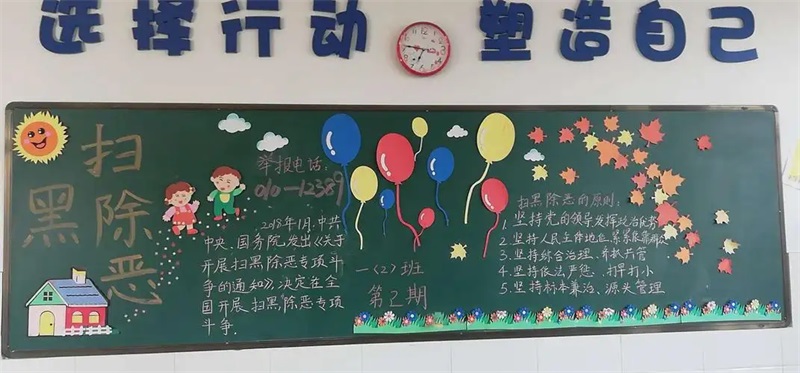 选择行动 塑造自己
扫黑除恶
举报电话:
010-12389
2018年1月,中共
中央、国务院发出《关于
开展扫黑除恶专项斗
争的通知》,决定在全
国开展扫黑除恶专项
斗争.
一〈2〉班
第2期
扫黑除恶的原则:
1. 坚持党的领导发挥政治优势
2. 坚持人民主体地位、紧紧依靠群众
3. 坚持综合治理、齐抓共管
4. 坚持依法严惩、打早打小
5. 坚持标本兼治、源头管理